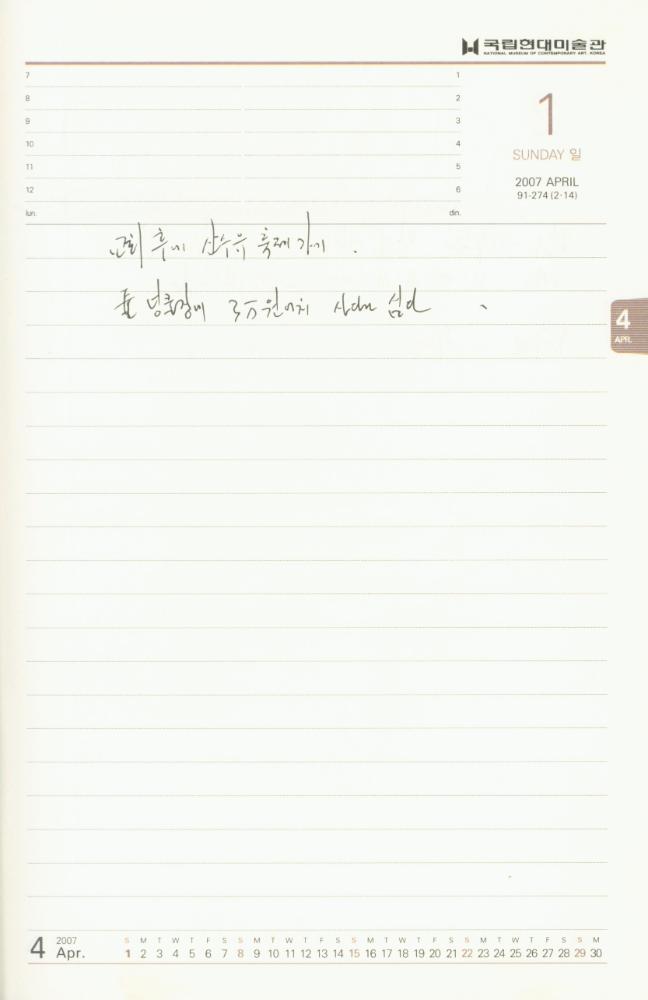 국립현대미술관
NATIONAL MUSEUM OF CONTEMPORARY ART, KOREA
7 1
8 2
9 3
10 4
11 5
12 6
lun. din.
1
SUNDAY 일
2007 APRIL
91-274 (2-14)
교회 후에 산수유 축제 가기 .
3만원어치 사다 심다
4
APR.
4 2007 Apr.
S M T W T F S S M T W T F S S M T W T F S S M T W T F S S M
1 2 3 4 5 6 7 8 9 10 11 12 13 14 15 16 17 18 19 20 21 22 23 24 25 26 27 28 29 30